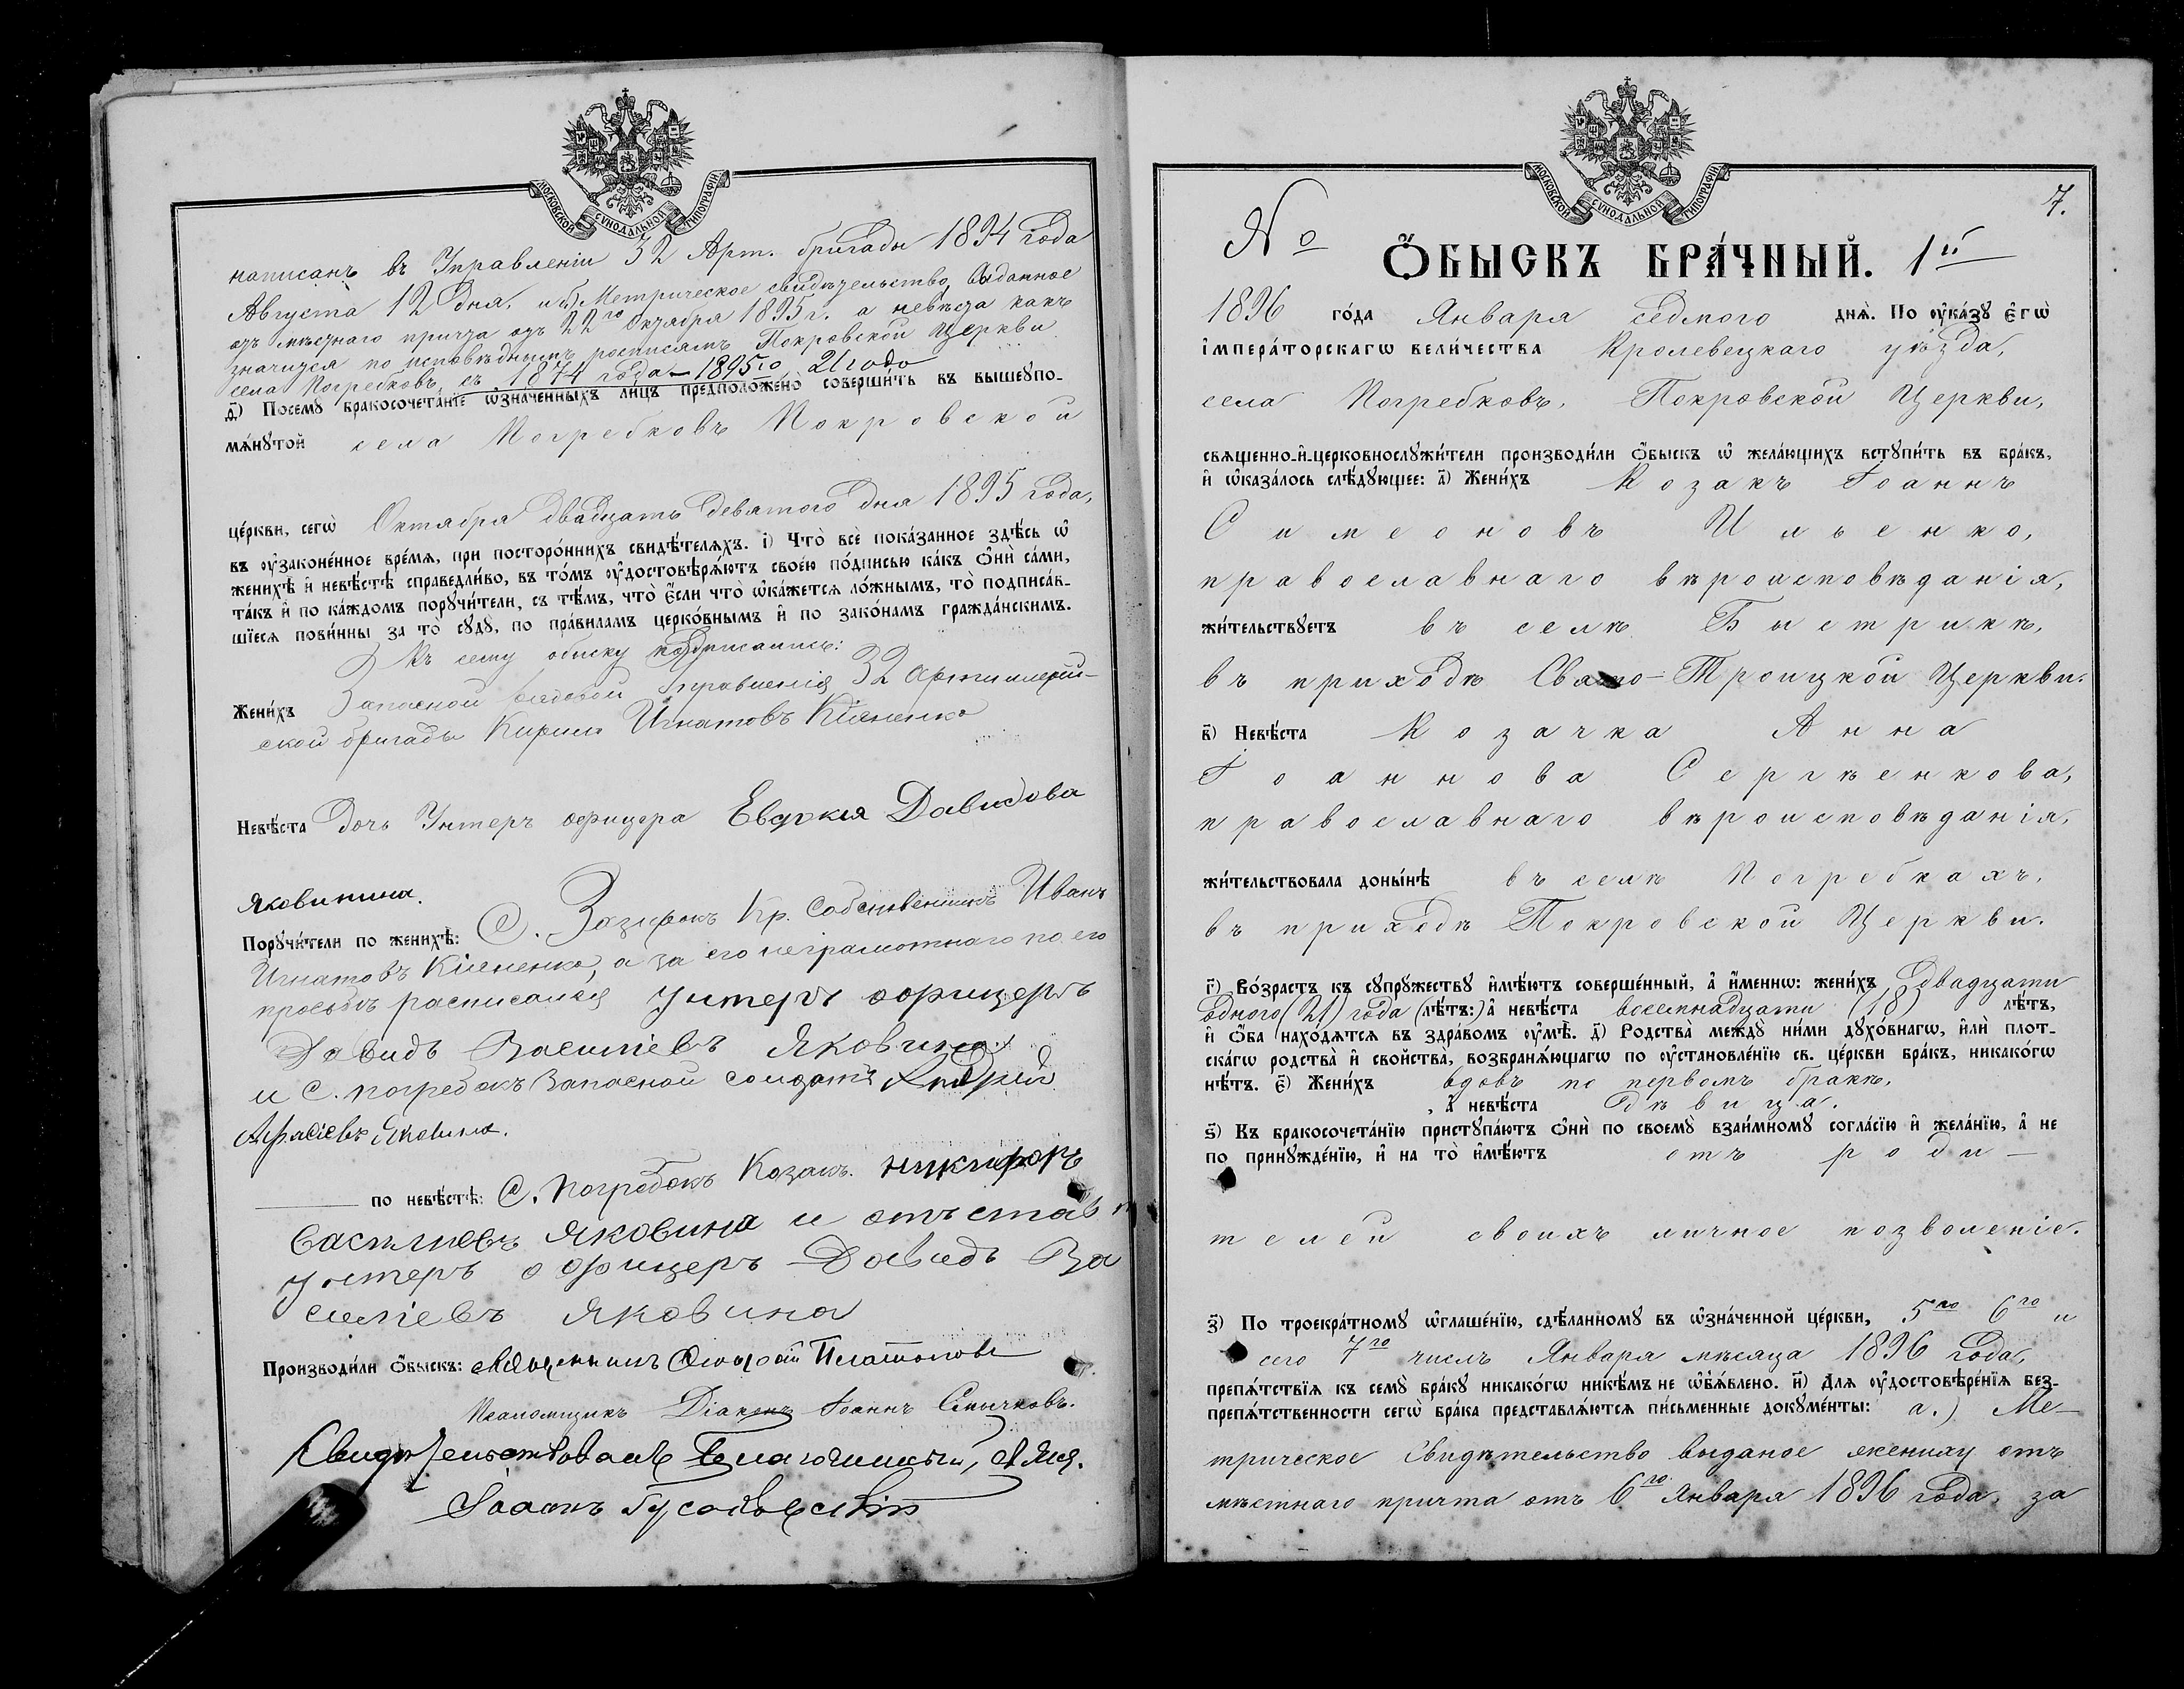 МОСКОВСКОЙ СѴНОДАЛЬНОЙ ТИПОГРАФІИ
написанъ въ Управленіи 32 Арт. бригады 1894 года
Августа 12 дня, и б) Метрическое свидѣтельство, выданное
отъ мѣстнаго причта отъ 22го Октября 1895 г. а невѣста какъ
значится по исповѣднымъ росписямъ Покровской Церкви
села Погребковъ, съ 1874 года — 1895го, 21 годо
д҃) Посемꙋ бракосочета́нїе ѡ҆зна́ченныхъ ли́цъ предположено̀ соверши́ть въ вышеꙋпо-
мѧ́нꙋтой села Погребковъ Покровской
це́ркви, сегѡ̀ Октября двадцать девятого дня 1895 года,
въ ᲂу҆законе́нное вре́мѧ, при посторо́ннихъ свидѣ́телѧхъ. і҃) Что̀ всѐ пока́занное здѣ́сь ѡ҆
женихѣ̀ и҆ невѣ́стѣ справедли́во, въ то́мъ ᲂу҆достовѣрѧ́ютъ свое́ю по́дписью ка́къ ѻ҆нѝ са́ми,
та́къ и҆ по ка́ждомъ порꙋчи́тели, съ тѣ́мъ, что̀ є҆́сли что̀ ѡ҆ка́жетсѧ ло́жнымъ, то̀ подписа́в-
шїесѧ пови́нны за то̀ сꙋдꙋ̀, по пра́виламъ церко́внымъ и҆ по зако́намъ гражда́нскимъ.
Къ сему обыску подписались:
Жени́хъ Запасной рядовой Управленія 32 Артиллерій-
ской бригады Кирилъ Игнатовъ Кіяненко
Невѣ́ста Дочь Унтеръ офицера Евдокія Давидова
Яковинина.
Порꙋчи́тели по женихѣ̀: С. Зазирокъ Кр. Собственникъ Иванъ
Игнатовъ Кіяненко, а за его неграмотнаго по его
просьбѣ расписался Унтеръ офицеръ
Давидъ Василіевъ Яковина
и С. Погребокъ Запасной солдатъ Андрей
Яковина.
по невѣ́стѣ: С. Погребокъ Козакъ Никифоръ
Василиевъ Яковина и отъставн
Унтеръ офицеръ Давидъ Ва
силіевъ Яковина
Производи́ли ѻ҆́быскъ: Священникъ Платоновъ
Псаломщикъ Діаконъ Іоаннъ Смычковъ.
Свидѣтельствовалъ Благочинный, Свящ.
Іоаннъ
МОСКОВСКОЙ СѴНОДАЛЬНОЙ ТИПОГРАФІИ
7.
№
Ѻ҆́БЫСКЪ БРА́ЧНЫЙ. 1й
1896 го́да Января седмого днѧ̀. По ᲂу҆ка́зꙋ є҆гѡ̀
і҆мпера́торскагѡ вели́чества Кролевецкаго уѣзда,
села Погребковъ, Покровской Церкви,
свѧщенно-и҆-церковнослꙋжи́тели производи́ли ѻ҆́быскъ ѡ҆ жела́ющихъ встꙋпи́ть въ бра́къ,
и҆ ѡ҆каза́лось слѣ́дꙋющее: а҃) Жени́хъ Козакъ Іоаннъ
Симеоновъ Ильенко,
православнаго вѣроисповѣданія,
жи́тельствꙋетъ въ селѣ Быстрикѣ,
въ приходѣ Свято-Троицкой Церкви.
в҃) Невѣ́ста Козачка Анна
Іоаннова Сергѣенкова,
православнаго вѣроисповѣданія,
жи́тельствовала доны́нѣ въ селѣ Погребкахъ,
въ приходѣ Покровской Церкви.
г҃) Во́зрастъ къ сꙋпрꙋ́жествꙋ и҆мѣ́ютъ соверше́нный, а҆ и҆́меннѡ: жени́хъ двадцати
одного (21) года (лѣ́тъ:) а҆ невѣ́ста восемнадцати (18) лѣ́тъ,
и҆ ѻ҆́ба нахо́дѧтсѧ въ здра́вомъ ᲂу҆мѣ̀. д҃) Родства̀ междꙋ̀ ни́ми дꙋхо́внагѡ, и҆лѝ плот-
ска́гѡ родства̀ и҆ сво́йства̀, возбранѧ́ющагѡ по ᲂу҆становле́нїю св. це́ркви бра́къ, никако́гѡ
нѣ́тъ. є҃) Жени́хъ вдовъ по первомъ бракѣ,
, а҆ невѣ́ста дѣвица.
ѕ҃) Къ бракосочета́нїю пристꙋпа́ютъ ѻ҆нѝ по своемꙋ̀ взаи́мномꙋ согла́сїю и҆ жела́нїю, а҆ не
по принꙋжде́нїю, и҆ на то̀ и҆мѣ́ютъ отъ роди-
телей своихъ личное позволеніе.
з҃) По троекра́тномꙋ ѡ҆глаше́нїю, сдѣ́ланномꙋ въ ѡ҆зна́ченной це́ркви, 5го 6го и
сего 7го числъ Января мѣсяца 1896 года,
препѧ́тствїѧ къ семꙋ̀ бра́кꙋ никако́гѡ никѣ́мъ не ѡ҆б̾ѧ́влено. и҃) Для ᲂу҆достовѣре́нїѧ без-
препѧ́тственности сегѡ̀ бра́ка представлѧ́ютсѧ пи́сьменные докꙋме́нты: а.) Ме-
трическое Свидѣтельство выданое жениху отъ
мѣстнаго причта отъ 6го Января 1896 года, за